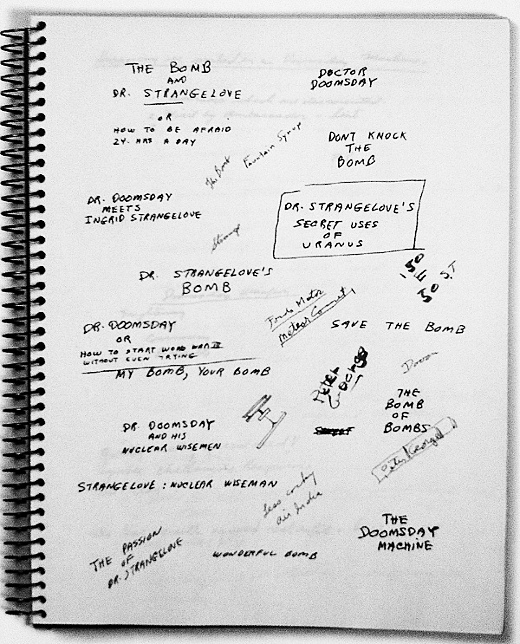 THE BOMB
AND
DR. STRANGELOVE
OR
HOW TO BE AFRAID
24 HRS A DAY
DOCTOR
DOOMSDAY
DONT KNOCK
THE
BOMB
Fountain Syrup
DR. DOOMSDAY
MEETS
INGRID STRANGELOVE
DR. STRANGELOVE'S
SECRET USES
OF
URANUS
Strange
DR. STRANGELOVE'S
BOMB
150
50
S.T
Meteor Comet
SAVE THE BOMB
DR. DOOMSDAY
OR
HOW TO START WORLD WAR III
WITHOUT EVEN TRYING
MY BOMB, YOUR BOMB
PETER
GEORGE
THE
BOMB
OF
BOMBS
DR. DOOMSDAY
AND HIS
NUCLEAR WISEMEN
Peter George
STRANGELOVE: NUCLEAR WISEMAN
air India
THE PASSION
OF
DR. STRANGELOVE
WONDERFUL BOMB
THE
DOOMSDAY
MACHINE